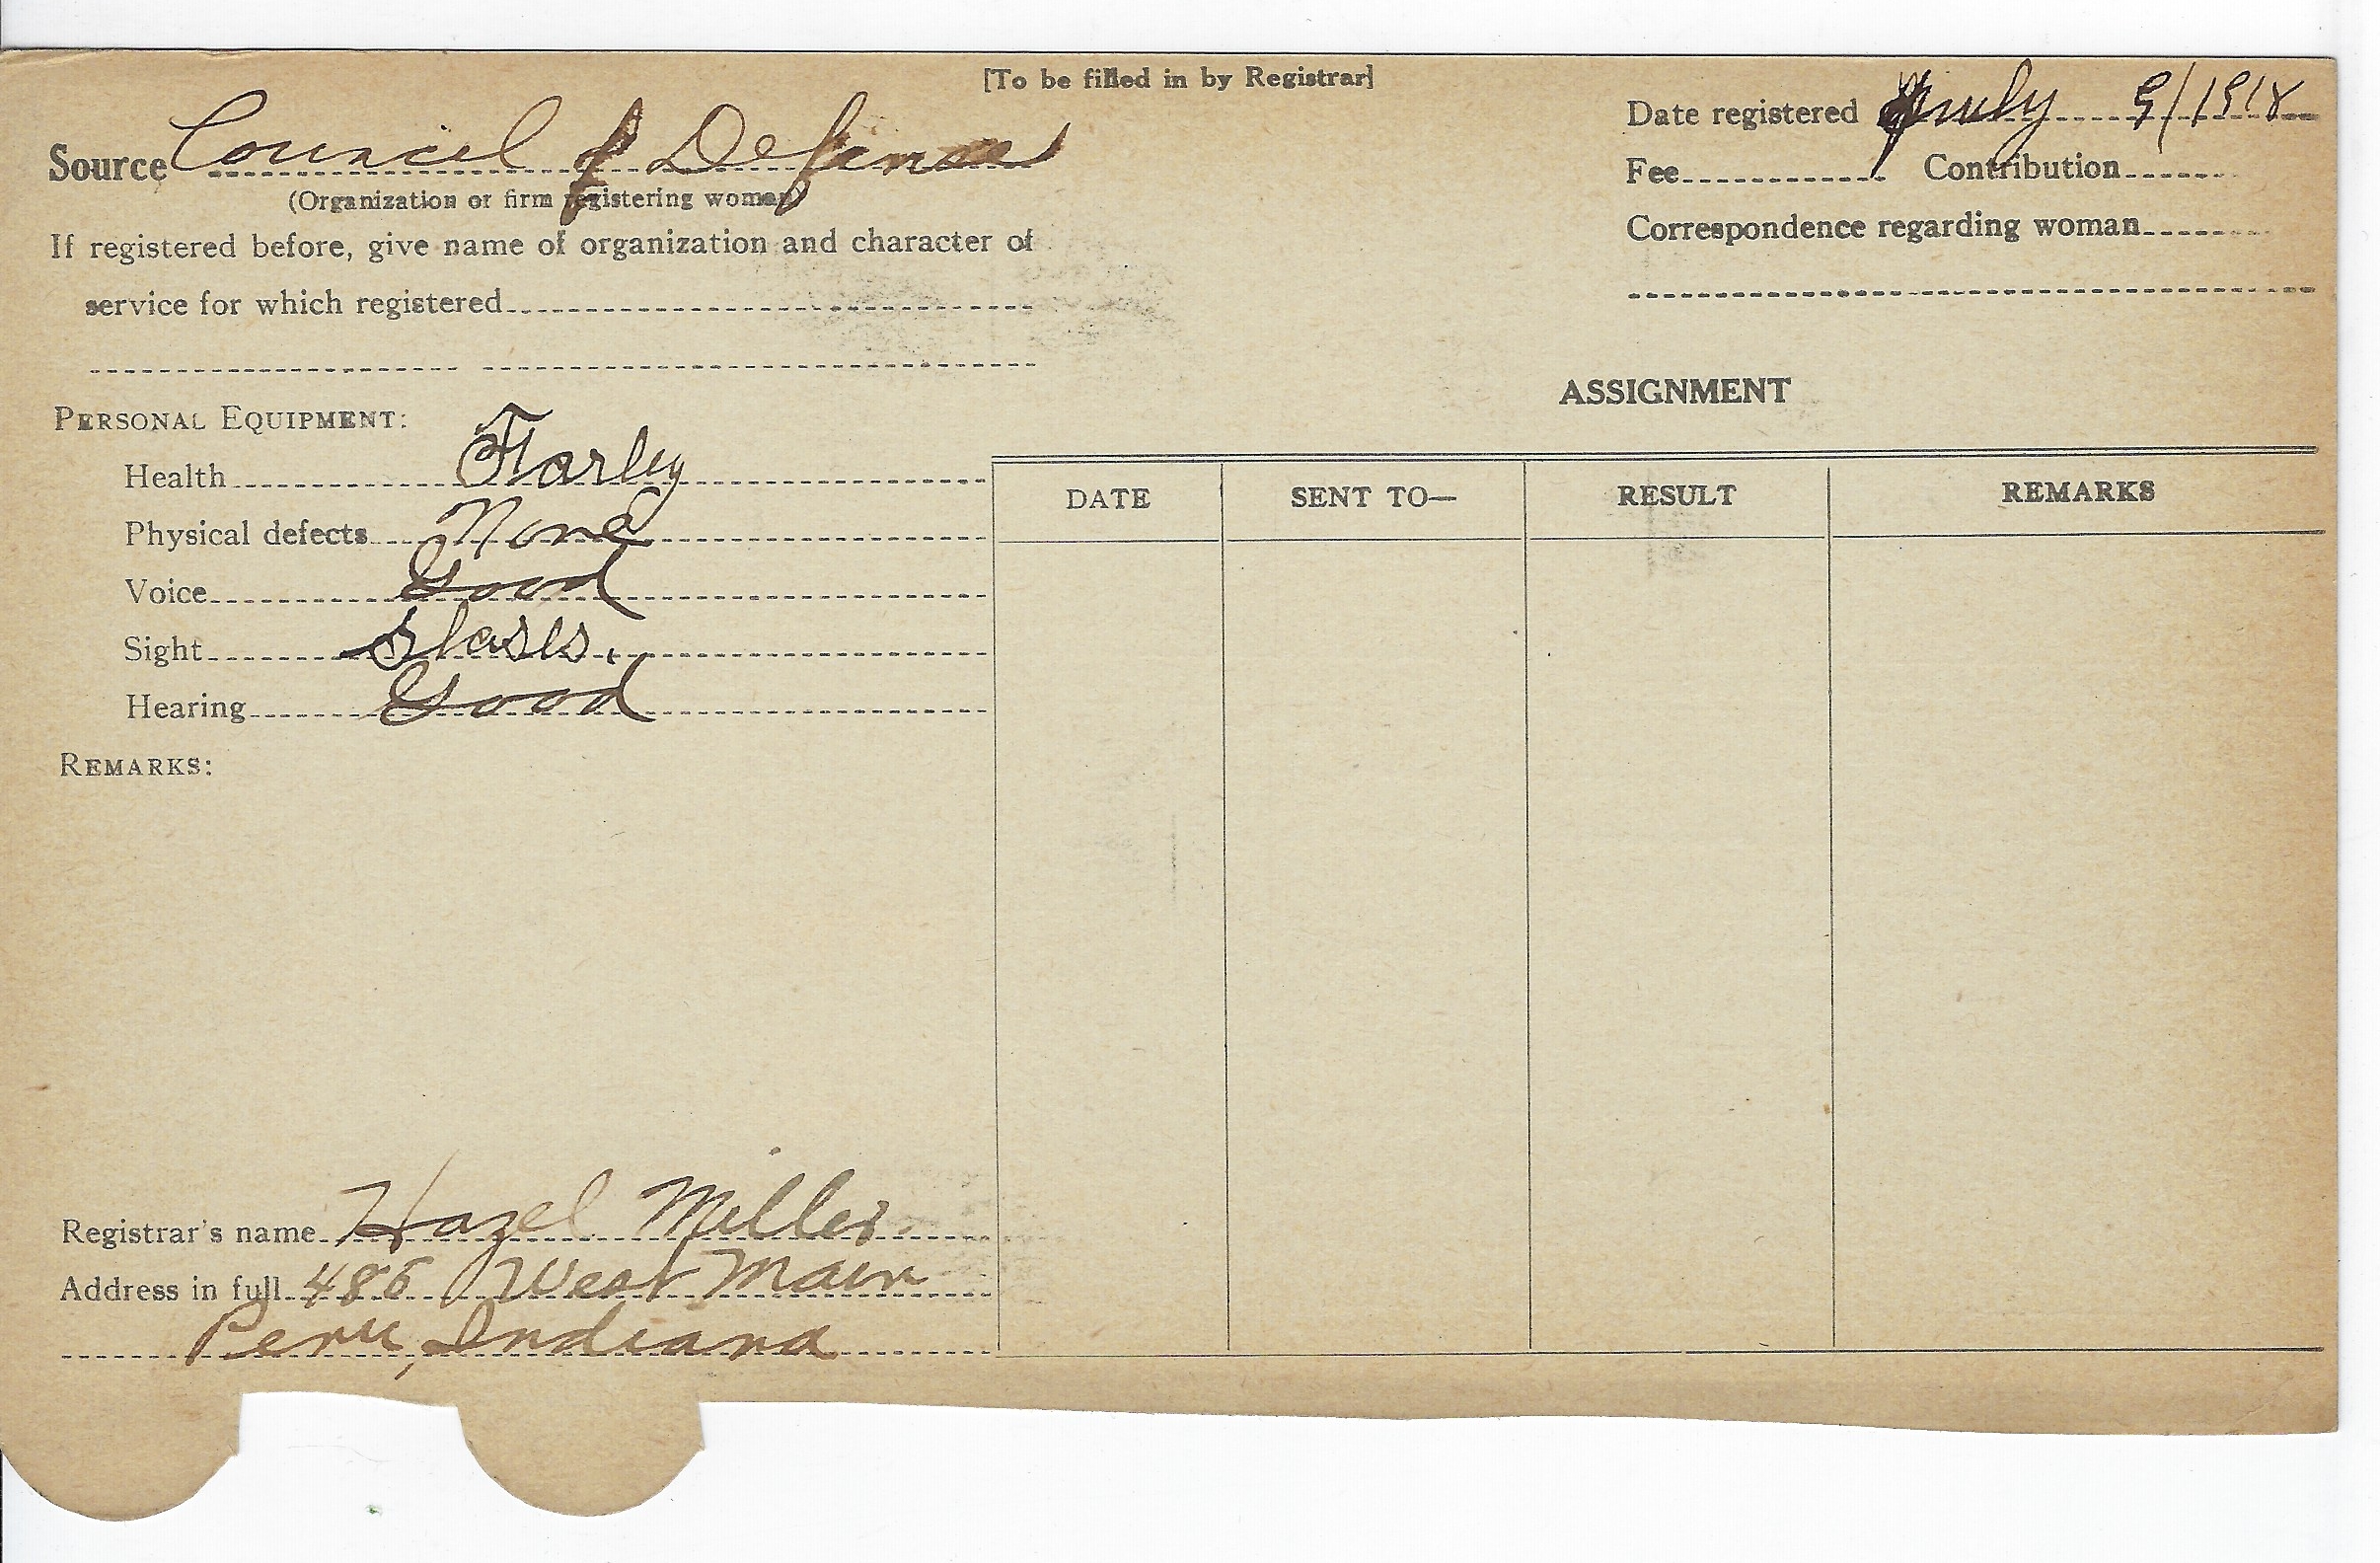 [To be filled in by Registrar]
Date registered July 9/1918
Source Council of Defense
(Organization or firm registering woman)
Fee Contribution
Correspondence regarding woman
If registered before, give name of organization and character of
service for which registered
ASSIGNMENT
PERSONAL EQUIPMENT:
Health
Physical defects None
Voice Good
Sight Glases.
Hearing Good
DATE SENT TO— RESULT REMARKS
REMARKS:
Registrar's name Hazel Miller.
Address in full 486 West Main
Peru, Indiana